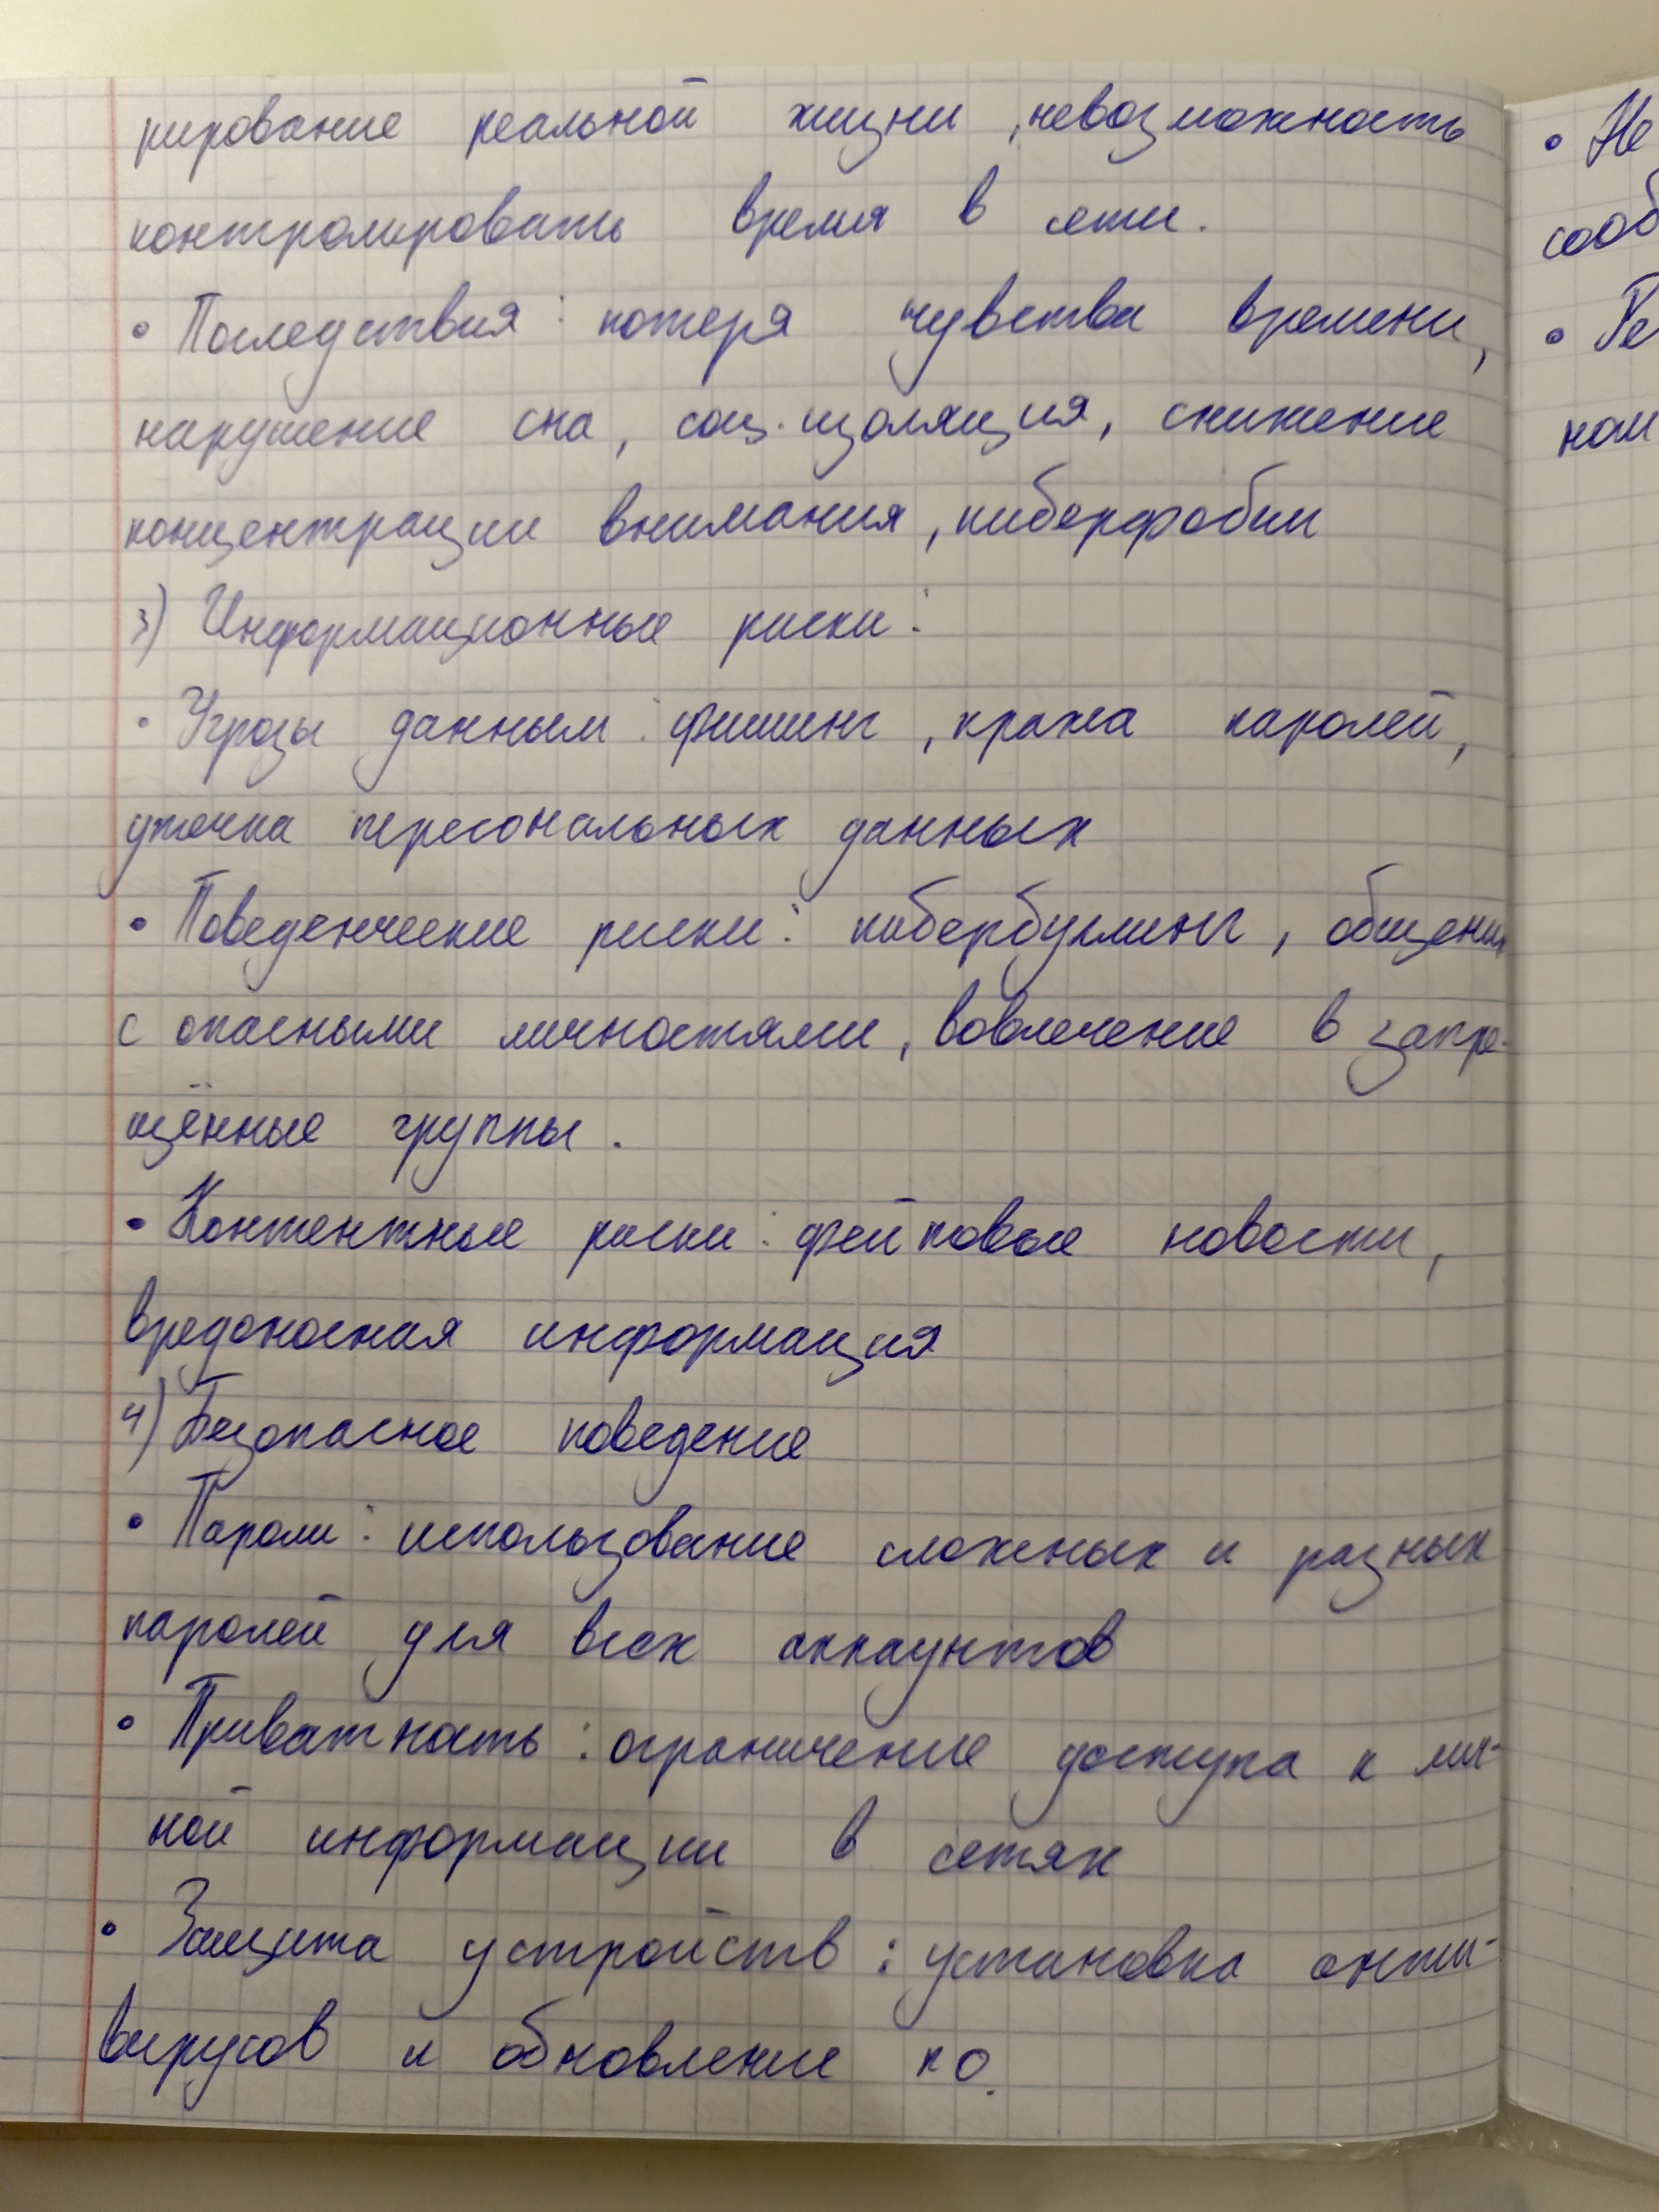 рирование реальной жизни, невозможность
контролировать время в сети.
• Последствия: потеря чувства времени,
нарушение сна, соц. изоляция, снижение
концентрации внимания, киберфобии
3) Информационные риски:
• Угрозы данным: фишинг, кража паролей,
утечка персональных данных
• Поведенческие риски: кибербуллинг, общение
с опасными личностями, вовлечение в запре-
щённые группы.
• Контентные риски: фейковые новости,
вредоносная информация
4) Безопасное поведение
• Пароли: использование сложных и разных
паролей для всех аккаунтов
• Приватность: ограничение доступа к лич-
ной информации в сетях
• Защита устройств: установка анти-
вирусов и обновление ПО.
• Не
сооб
• Ре
ком